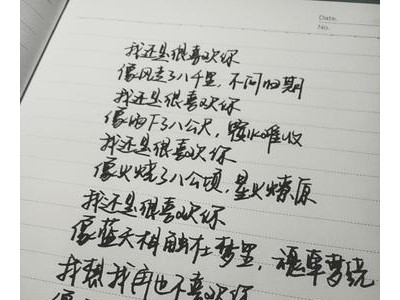 Date.
No.
我还是很喜欢你
像风走了八千里，不问归期
我还是很喜欢你
像雨下了八公尺，覆水难收
我还是很喜欢你
像火烧了八公顷，星火燎原
我还是很喜欢你
像蓝天 在梦里，魂牵梦绕
我想我再也不喜欢你
像